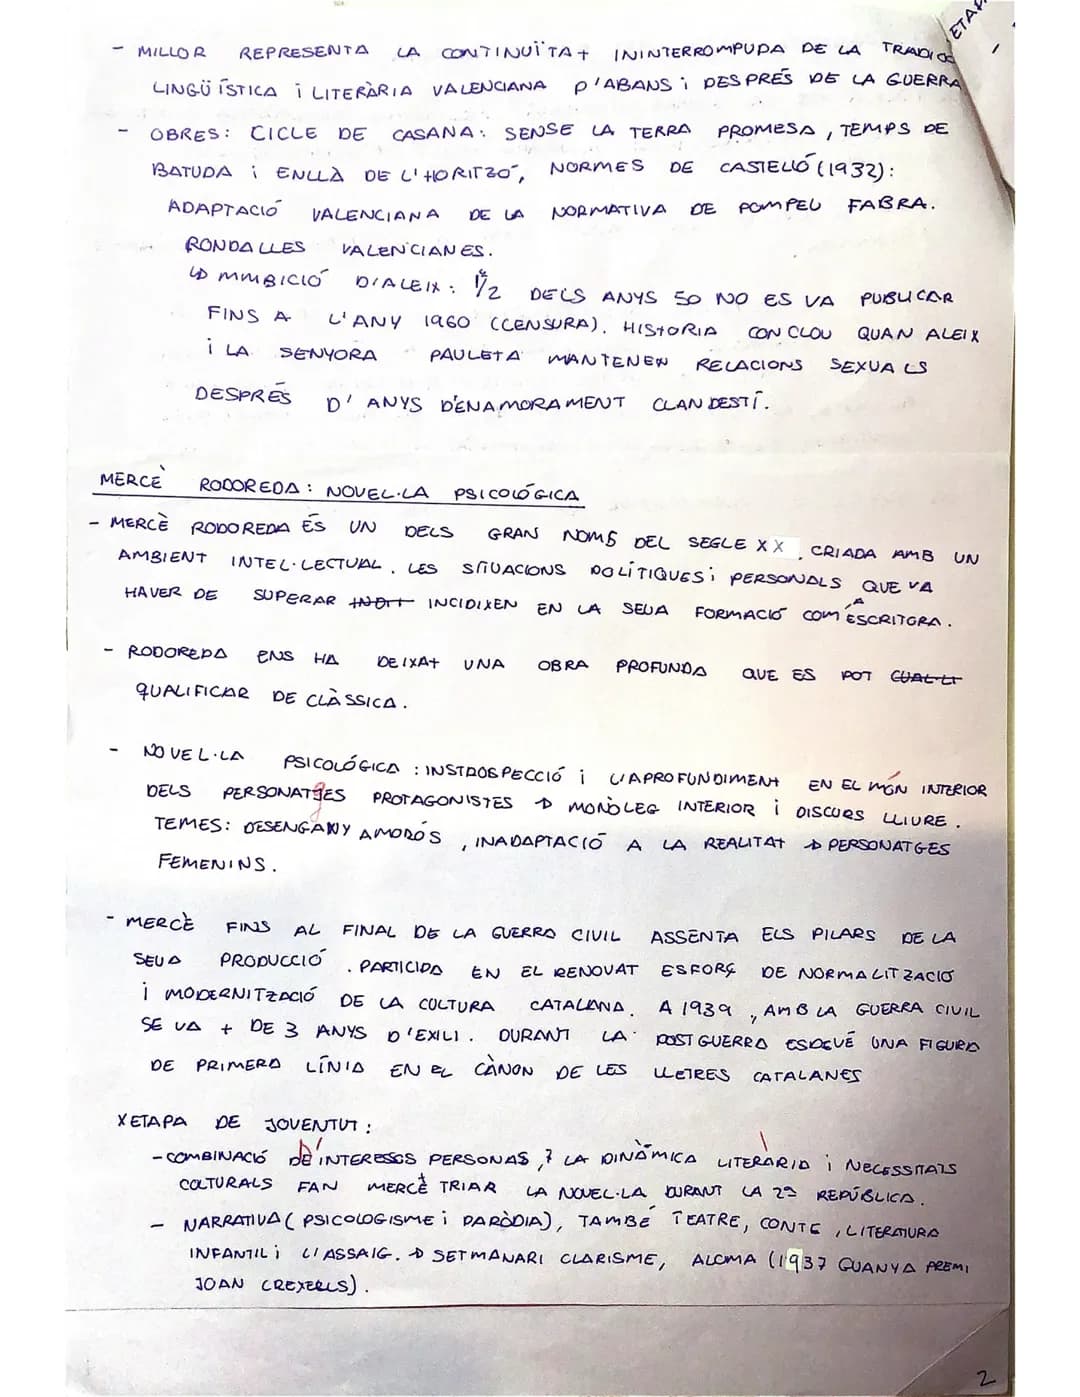 ETAP
- MILLOR REPRESENTA LA CONTINUÏTAT ININTERROMPUDA DE LA TRADICO
LINGÜÍSTICA i LITERÀRIA VALENCIANA D'ABANS i DESPRÉS DE LA GUERRA
- OBRES: CICLE DE CASANA: SENSE LA TERRA PROMESA, TEMPS DE
BATUDA i ENLLÀ DE L'HORITZÓ, NORMES DE CASTELLÓ (1932):
ADAPTACIÓ VALENCIANA DE LA NORMATIVA DE POMPEU FABRA.
RONDALLES VALENCIANES.
↳ MMBICIÓ D'ALEIX: 1/2 DELS ANYS 50 NO ES VA PUBLICAR
FINS A L'ANY 1960 (CENSURA). HISTORIA CONCLOU QUAN ALEIX
i LA SENYORA PAULETA MANTENEN RELACIONS SEXUALS
DESPRÉS D'ANYS D'ENAMORAMENT CLANDESTÍ.
MERCÈ RODOREDA: NOVEL·LA PSICOLÓGICA
- MERCÈ RODOREDA ÉS UN DELS GRAN NOMS DEL SEGLE XX, CRIADA AMB UN
AMBIENT INTEL·LECTUAL. LES SITUACIONS POLÍTIQUES i PERSONALS QUE VA
HAVER DE SUPERAR INCIDIXEN EN LA SEUA FORMACIÓ COM A ESCRITORA.
- RODOREDA ENS HA DEIXAT UNA OBRA PROFUNDA QUE ES POT CUALLI
QUALIFICAR DE CLÀSSICA.
- NOVEL·LA PSICOLÓGICA: INSTROSPECCIÓ i L'APROFUNDIMENT EN EL MÓN INTERIOR
DELS PERSONATGES PROTAGONISTES → MONÒLEG INTERIOR i DISCURS LLIURE.
TEMES: DESENGANY AMORÓS, INADAPTACIÓ A LA REALITAT → PERSONATGES
FEMENINS.
- MERCÈ FINS AL FINAL DE LA GUERRA CIVIL ASSENTA ELS PILARS DE LA
SEUA PRODUCCIÓ. PARTICIPA EN EL RENOVAT ESFORÇ DE NORMALITZACIÓ
i MODERNITZACIÓ DE LA CULTURA CATALANA. A 1939, AMB LA GUERRA CIVIL
SE VA + DE 3 ANYS D'EXILI. DURANT LA POSTGUERRA ESDEVÉ UNA FIGURA
DE PRIMERA LÍNIA EN EL CÀNON DE LES LLETRES CATALANES
XETAPA DE JOVENTUT:
- COMBINACIÓ DE INTERESSOS PERSONAS, ? LA DINÀMICA LITERÀRIA i NECESSITATS
COLTURALS FAN MERCÈ TRIAR LA NOVEL·LA DURANT LA 2ª REPÚBLICA.
- NARRATIVA (PSICOLOGISME i PARÒDIA), TAMBÉ TEATRE, CONTE, LITERATURA
INFANTIL i L'ASSAIG. → SETMANARI CLARISME, ALOMA (1937 GUANYA PREMI
JOAN CREXERLS).
2